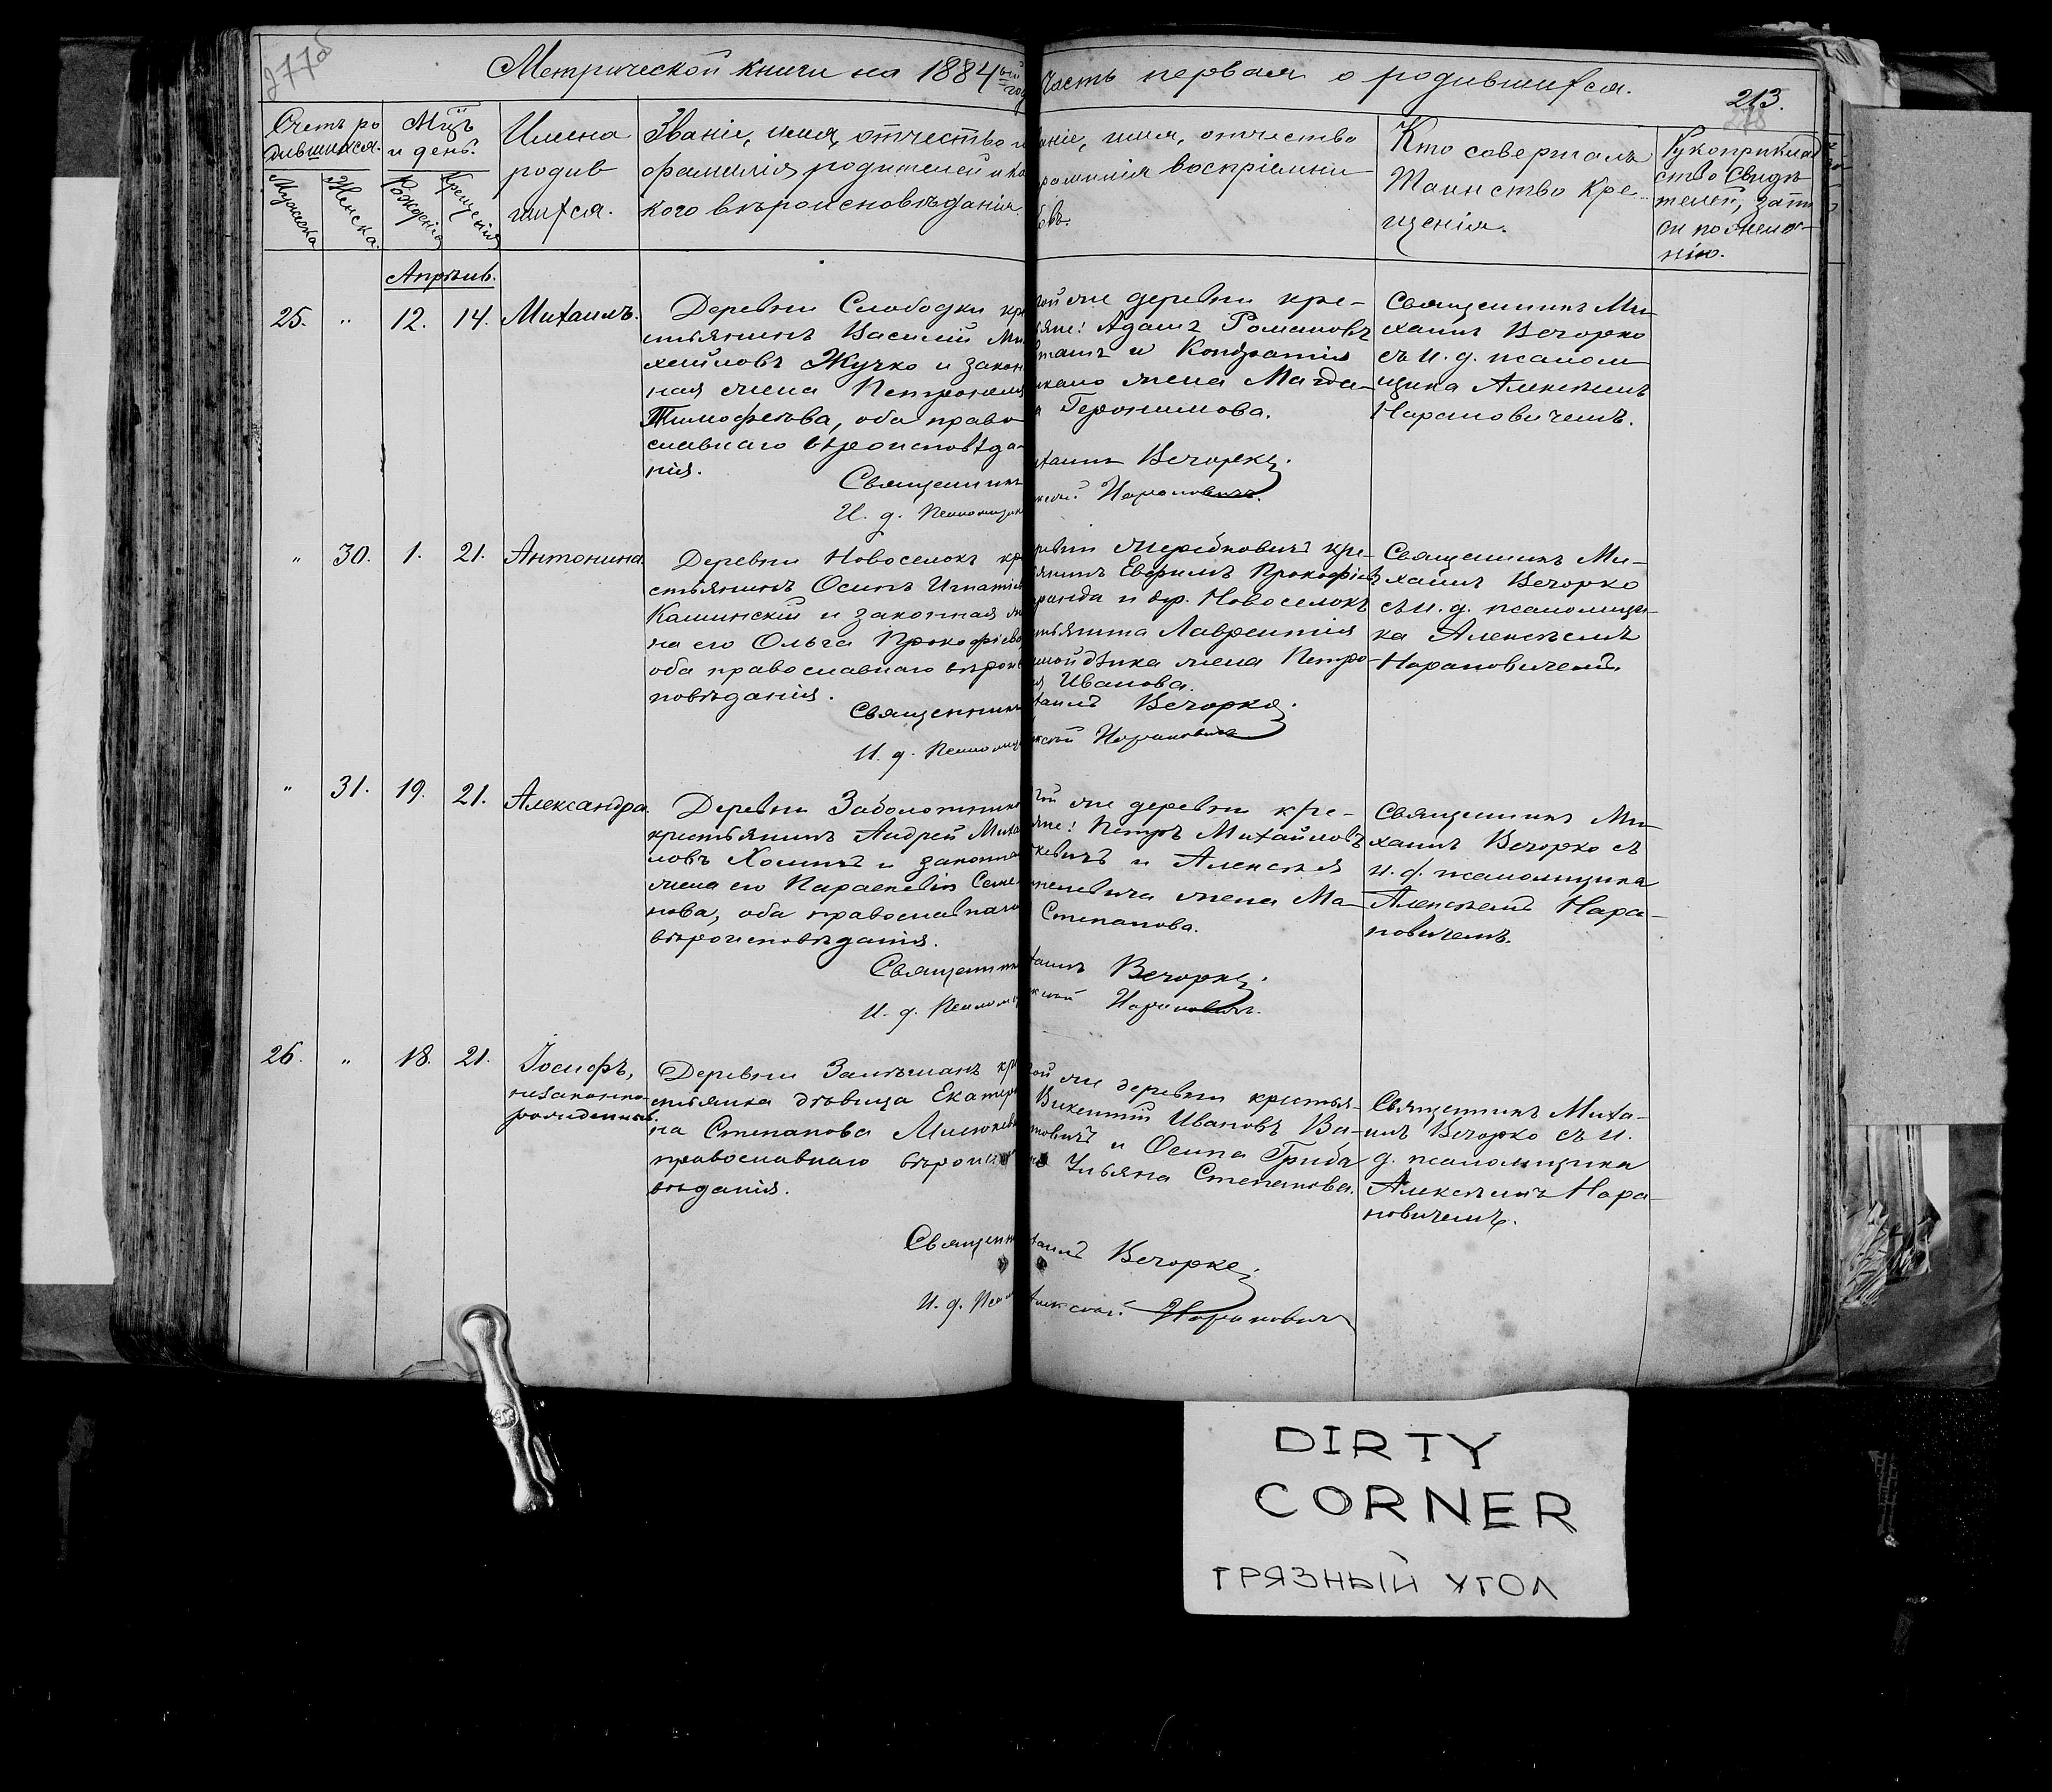 Метрической книги на 1884ый год
Часть первая о родившихся.
213.
Счетъ ро
дившихся.
Мужеска
Женска.
Мцъ
и день.
Рожденія
Крещенія
Имена
родив
шихся.
Званіе, имя, отчество и
фамилія родителей и ка
кого вѣроисповѣданія.
аніе, имя, отчество
фамилія воспріемни-
овъ.
Кто совершалъ
Таинство Кре-
щенія.
Рукоприклад
ство Свидѣ
телей, запи
си по жела-
нію.
Апрѣль.
25. " 12. 14. Михаилъ.
Деревни Слободки кре
стьянинъ Василій Ми
хайловъ Жучко и закон
ная жена Петронеля
Тимофеева, оба право
славнаго вѣроисповѣда-
нія.
Священникъ
И. д. Псаломщик
той же деревни кре-
яне: Адамъ Романовъ
и Кондратія
жена Магда-
а Геронимова.
хаилъ Вечорко.
ксѣй Нарановичъ.
Священникъ Ми-
хаилъ Вечорко
съ и. д. псалом-
щика Алексѣемъ
Нарановичемъ.
" 30. 1. 21. Антонина.
Деревни Новоселокъ кр
стьянинъ Осипъ Игнатіев
Каминскій и законная же
на его Ольга Прокофіева
оба православнаго вѣроис
повѣданія.
Священник
И. д. Псаломщ
ревни Жеребковичъ кре-
янинъ Евфимъ Прокофіевъ
и дер. Новоселокъ
стьянина Лаврентія
жена Петро-
я Иванова.
хаилъ Вечорко.
ксѣй Нарановичъ
Священникъ Ми-
хаилъ Вечорко
съ и. д. псаломщи-
ка Алексѣемъ
Нарановичемъ.
" 31. 19. 21. Александра.
Деревни Заболотник
крестьянинъ Андрей Миха
ловъ и законна
жена его Параскевія Семе
нова, оба православнаго
вѣроисповѣданія.
Священник
И. д. Псаломщ
той же деревни кре-
яне: Петръ Михайловъ
и Алексѣя
жена Ма-
Степанова.
хаилъ Вечорко.
ксѣй Нарановичъ.
Священникъ Ми-
хаилъ Вечорко съ
и. д. псаломщика
Алексѣемъ Нара-
новичемъ.
26. " 18. 21. Іосифъ,
незаконно-
рожденный.
Деревни кре
стьянка дѣвица Екатери
на Степанова
православнаго вѣроиспо
вѣданія.
Священн
И. д. Псал
той же деревни крестья-
Викентій Ивановъ Ва-
и Осипа Гриба
Ульяна Степанова.
хаилъ Вечорко.
Алексѣй Нарановичъ
Священникъ Миха-
илъ Вечорко съ и.
д. псаломщика
Алексѣемъ Нара-
новичемъ.
DIRTY
CORNER
ГРЯЗНЫЙ УГОЛ